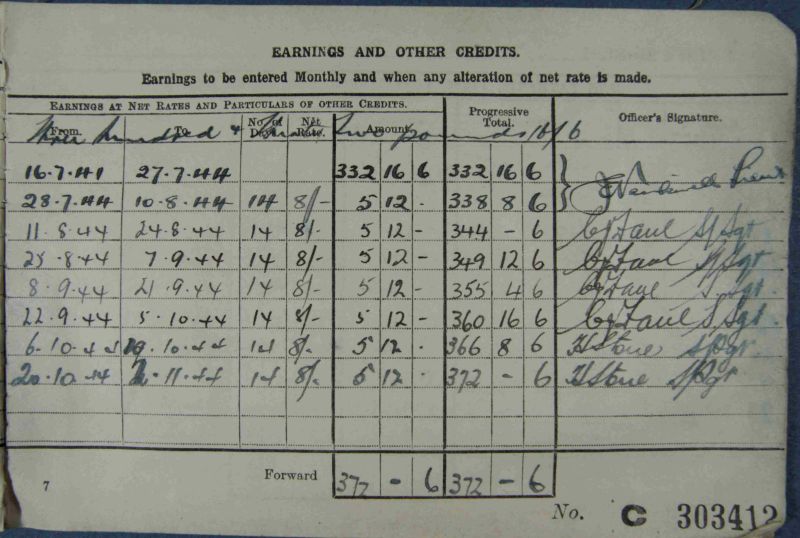 EARNINGS AND OTHER CREDITS.
Earnings to be entered Monthly and when any alteration of net rate is made.
EARNINGS AT NET RATES AND PARTICULARS OF OTHER CREDITS. Progressive Total. Officer's Signature.
From. To No. of Days Net Rate. Amount
three hundred & thirty two pounds 16/6
16.7.41 27.7.44 332 16 6 332 16 6
28.7.44 10.8.44 14 8/- 5 12 - 338 8 6
11.8.44 24.8.44 14 8/- 5 12 - 344 - 6 S/Sgt
25.8.44 7.9.44 14 8/- 5 12 - 349 12 6 S/Sgt
8.9.44 21.9.44 14 8/- 5 12 - 355 4 6 S/Sgt
22.9.44 5.10.44 14 8/- 5 12 - 360 16 6 S/Sgt
6.10.44 19.10.44 14 8/- 5 12 - 366 8 6 H Stone S/Sgt
20.10.44 2.11.44 14 8/- 5 12 - 372 - 6 H Stone S/Sgt
Forward 372 - 6 372 - 6
7
No. C 303412